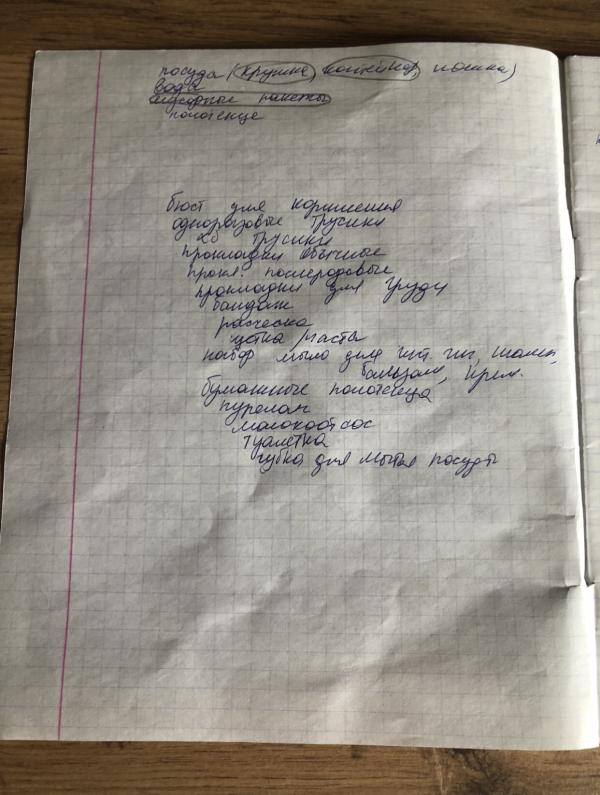 посуда (кружка, контейнер, ложка)
вода
мусорные пакеты
полотенце
бюст для кормления
одноразовые трусики
хб трусики
прокладки обычные
прокл. послеродовые
прокладки для груди
бандаж
расческа
щетка/паста
набор мыло для инт. гиг, шамп,
бальзам, крем.
бумажные полотенца
пурелан
молокоотсос
туалетка
губка для мытья посуды